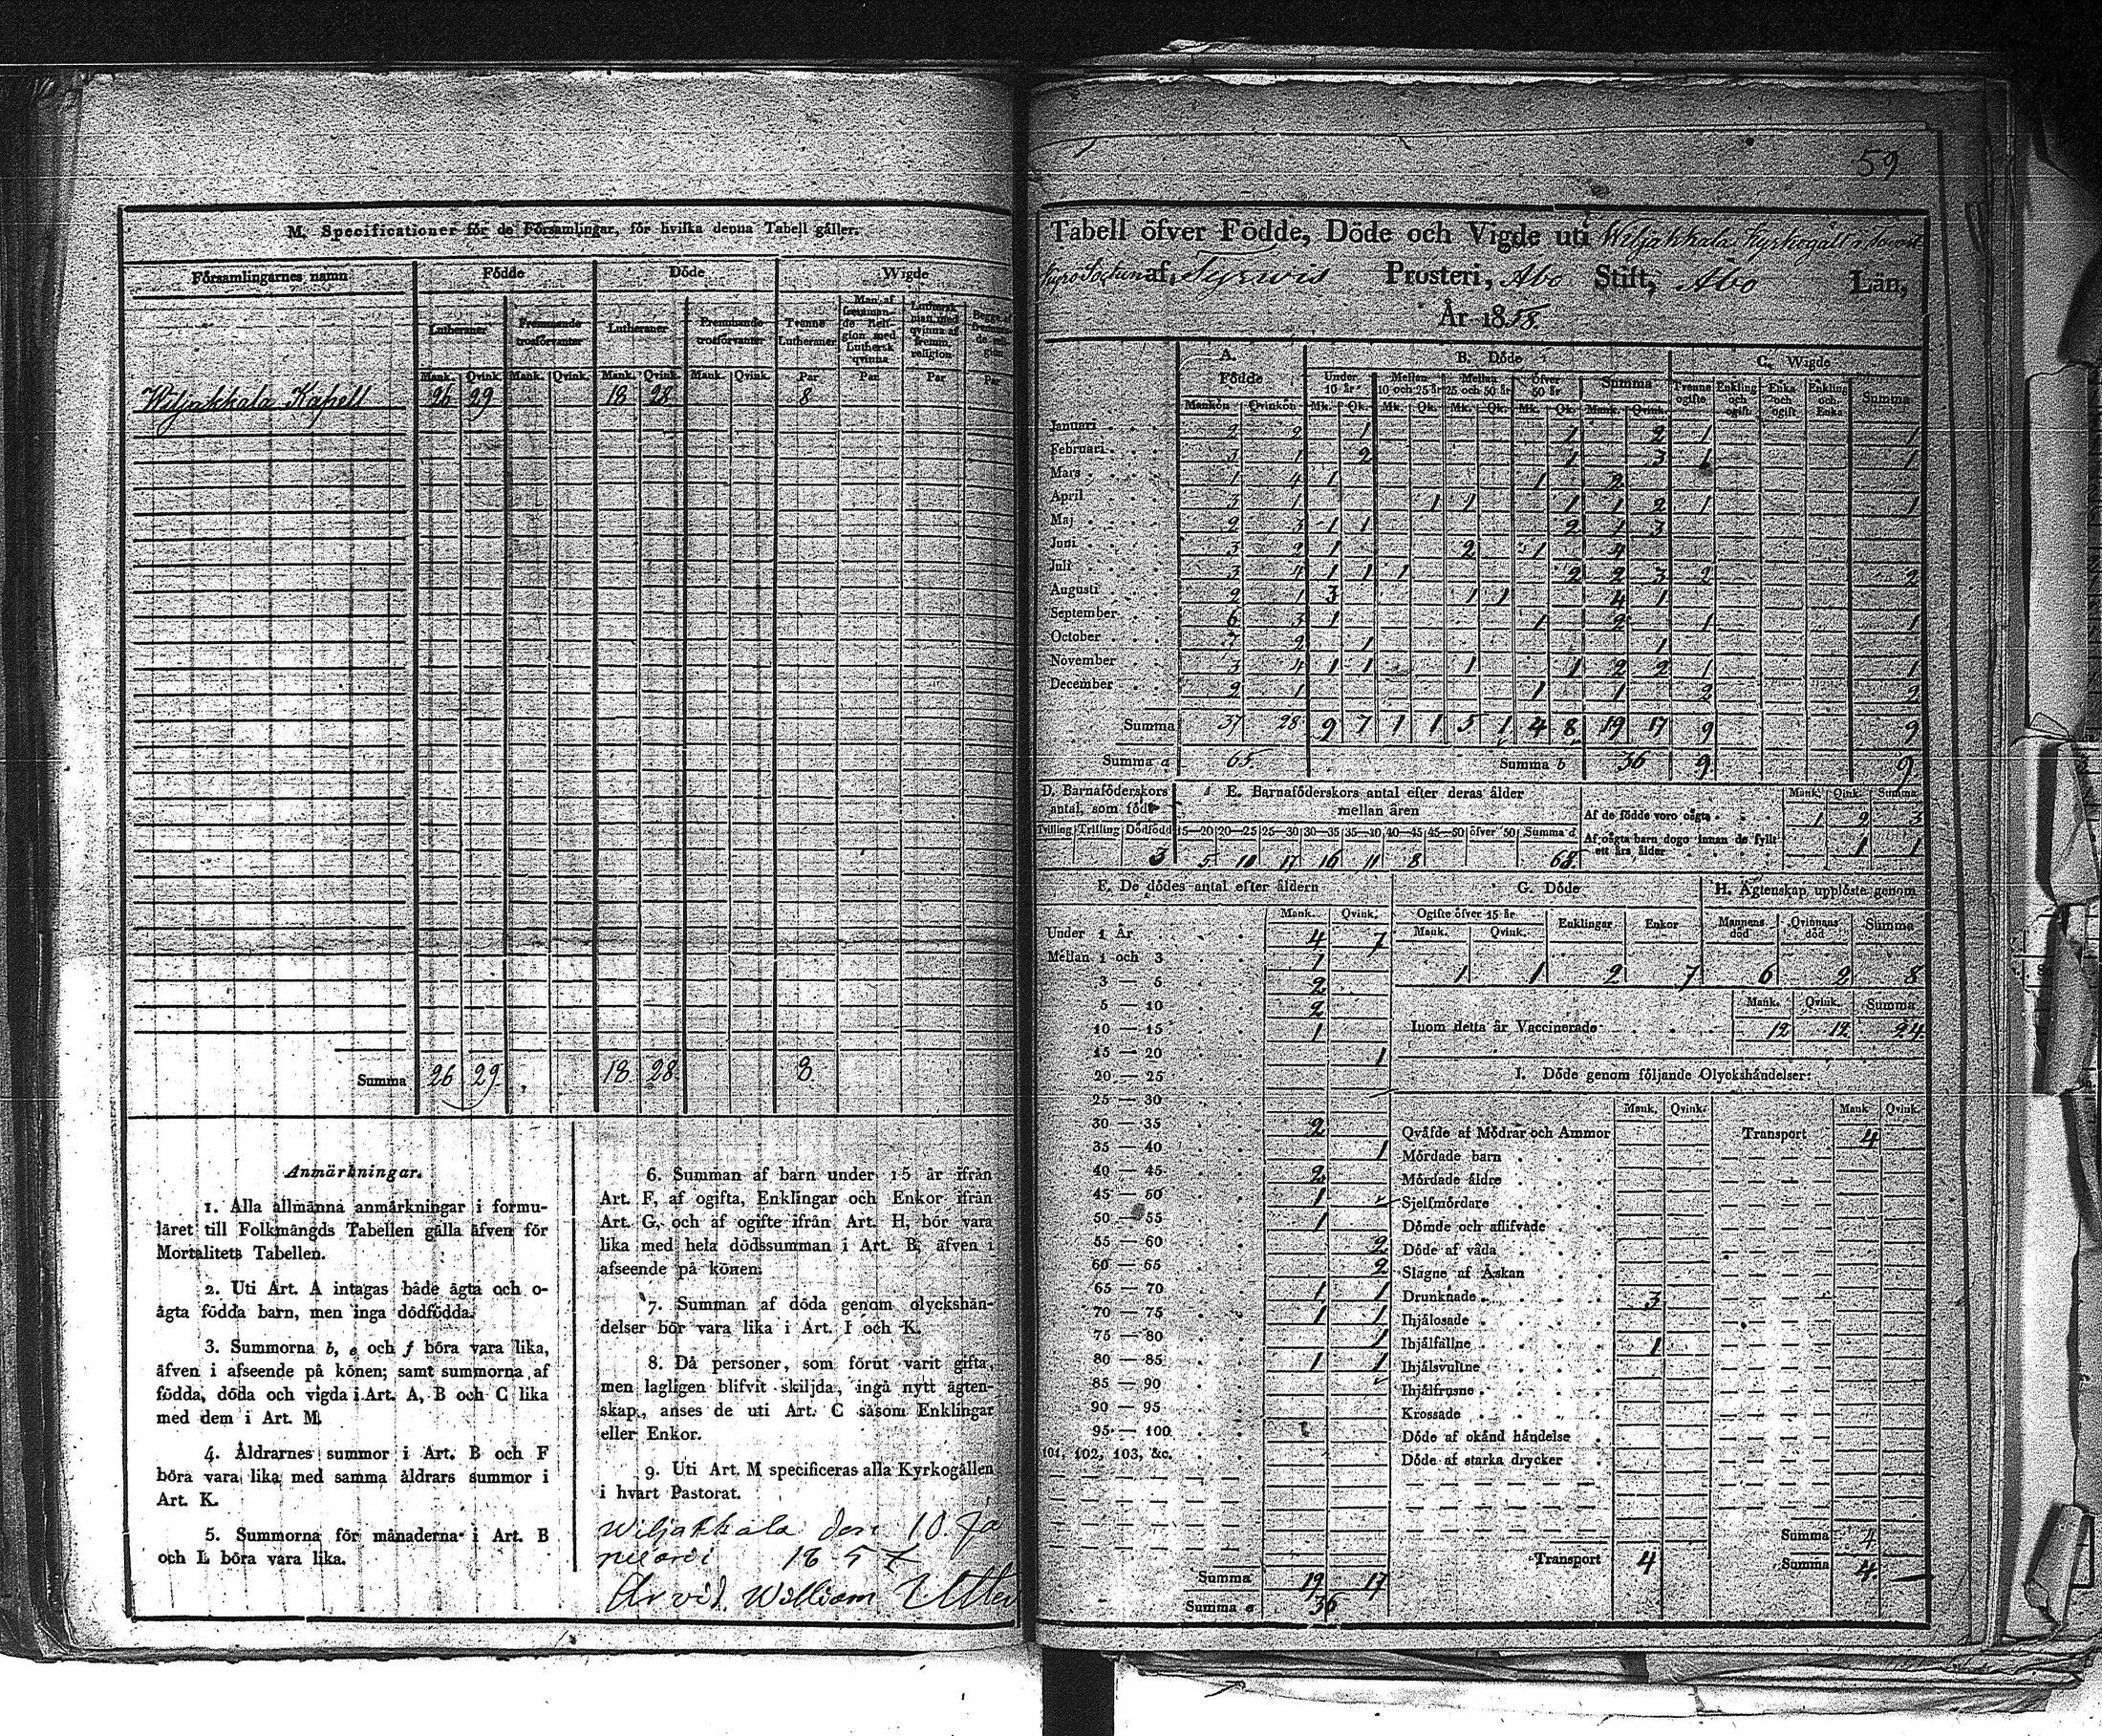 M. Specificationer för de Församlingar, för hvilka denna Tabell gäller.
Församlingarnes namn Födde Döde Wigde
Lutheraner Fremmande trosförvanter Lutheraner Fremmande trosförvanter Tvenne Lutheraner Man af fremmande Religion med Luthersk qvinna Luthersk man med qvinna af fremm. religion Begge af fremmande religion
Mank. Qvink. Mank. Qvink. Mank. Qvink. Mank. Qvink. Par Par Par Par
Wiljakkala Kapell 26 29 18 28 8
Summa 26 29 18 28 8
Anmärkningar.
1. Alla allmänna anmärkningar i formu-
läret till Folkmängds Tabellen gälla äfven för
Mortalitets Tabellen.
2. Uti Art. A intagas både ägta och o-
ägta födda barn, men inga dödfödda.
3. Summorna b, e och f böra vara lika,
äfven i afseende på könen; samt summorna af
födda, döda och vigda i Art. A, B och C lika
med dem i Art. M.
4. Åldrarnes summor i Art. B och F
böra vara lika med samma åldrars summor i
Art. K.
5. Summorna för månaderna i Art. B
och L böra vara lika.
6. Summan af barn under 15 år ifrån
Art. F, af ogifta, Enklingar och Enkor ifrån
Art. G, och af ogifte ifrån Art. H, bör vara
lika med hela dödssumman i Art. B, äfven i
afseende på könen.
7. Summan af döda genom olyckshän-
delser bör vara lika i Art. I och K.
8. Då personer, som förut varit gifta,
men lagligen blifvit skiljda, ingå nytt ägten-
skap, anses de uti Art. C såsom Enklingar
eller Enkor.
9. Uti Art. M specificeras alla Kyrkogällen
i hvart Pastorat.
Wiljakkala den 10 Ja
nuari 1857
Arvid William
59
Tabell öfver Födde, Döde och Vigde uti Wiljakkala Kyrkogäll
Kyro Socken af Prosteri, Åbo Stift, Åbo Län,
År 1858.
A. Födde B. Döde C. Wigde
Under 10 år Mellan 10 och 25 år Mellan 25 och 50 år öfver 50 år Summa Tvenne ogifte Enkling och ogift Enka och ogift Enkling och Enka Summa
Mankön Qvinkön Mk. Qk. Mk. Qk. Mk. Qk. Mk. Qk. Mank. Qvink.
Januari 2 2 1 1 2 1 1
Februari 3 1 2 1 3 1 1
Mars 1 4 1 1 2
April 3 1 1 1 1 1 2 1 1
Maj 2 3 1 1 2 1 3
Juni 3 2 1 2 1 4
Juli 3 4 1 1 1 2 2 3 2 2
Augusti 2 1 3 1 1 4 1
September 6 3 1 1 2 1 1
October 7 2 1 1
November 3 4 1 1 1 1 2 2 1 1
December 2 1 1 1 2 2
Summa 37 28 9 7 1 1 5 1 4 8 19 17 9 9
Summa a 65. Summa b 36 9 9
D. Barnaföderskors antal, som födt E. Barnaföderskors antal efter deras ålder mellan åren
Tvilling Trilling Dödfödd 15—20 20—25 25—30 30—35 35—40 40—45 45—50 öfver 50 Summa d
3 5 10 17 16 11 8
Mank. Qink. Summa
Af de födde voro oägta 1 2 3
Af oägta barn dogo innan de fyllt ett års ålder 1 1
F. De dödes antal efter åldern
Mank. Qvink.
Under 1 År 4 7
Mellan 1 och 3 1
3 — 5 2
5 — 10 2
10 — 15 1
15 — 20 1
20 — 25
25 — 30
30 — 35 2
35 — 40 1
40 — 45 2
45 — 50 1
50 — 55 1
55 — 60 2
60 — 65 2
65 — 70 1 1
70 — 75 1 1
75 — 80 1
80 — 85 1 1
85 — 90
90 — 95
95 — 100
101, 102, 103, &c.
Summa 19 17
Summa e 36
G. Döde
Ogifte öfver 15 år Enklingar Enkor
Mank. Qvink.
1 1 2 7
H. Ägtenskap upplöste genom
Mannens död Qvinnans död Summa
6 2 8
Mank. Qvink. Summa
Inom detta år Vaccinerade 12 12 24
I. Döde genom följande Olyckshändelser:
Mank. Qvink. Mank. Qvink.
Qväfde af Mödrar och Ammor Transport 4
Mördade barn
Mördade äldre
Sjelfmördare
Dömde och aflifvade
Döde af våda
Slagne af Åskan
Drunknade 3
Ihjälosade
Ihjälfallne 1
Ihjälsvultne
Ihjälfrusne
Krossade
Döde af okänd händelse
Döde af starka drycker
Summa 4
Transport 4 Summa 4